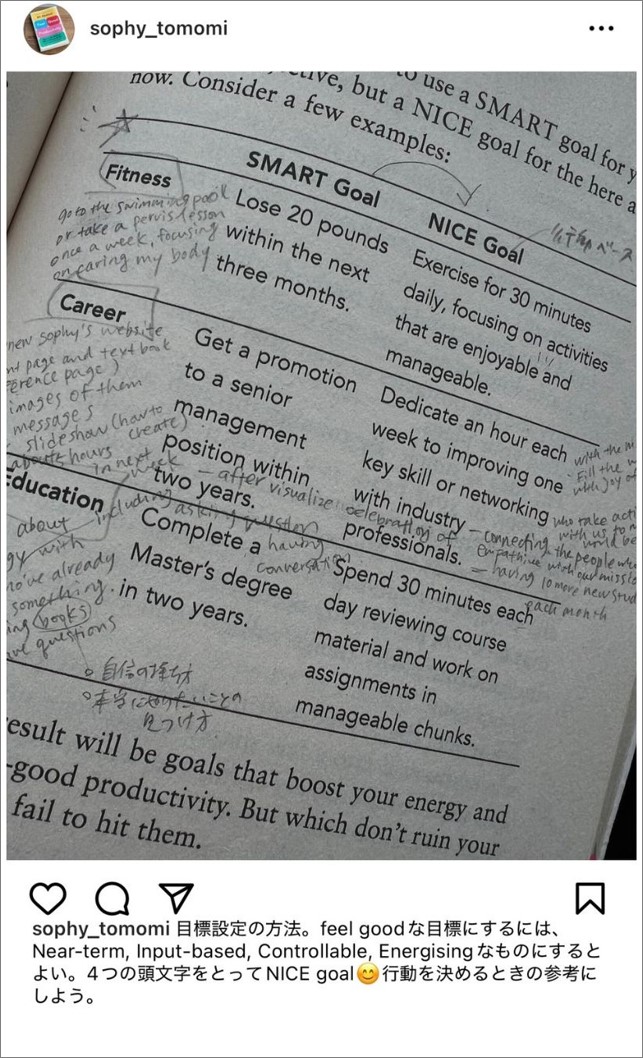 sophy_tomomi
to use a SMART goal for y
ctive, but a NICE goal for the here a
now. Consider a few examples:
SMART Goal
NICE Goal
行動ベース
Fitness
go to the swimming pool
or take a pervis lesson
once a week, focusing
on caring my body
Lose 20 pounds
within the next
three months.
Exercise for 30 minutes
daily, focusing on activities
that are enjoyable and
manageable.
Career
new sophy's website
nt page and text book
ference page)
images of them
messages
slideshow (how to
create)
hours
in next
week
Get a promotion
to a senior
management
position within
two years.
Dedicate an hour each
week to improving one
key skill or networking
with industry
professionals.
with the
Fill the
with joy of
who take acti
with us to
would be
after visualize
celebration of
connecting the people who
empathize with our missio
having 10 more new stud
each month
including asking question
having
conversation
Education
about
gy with
who've already
something.
ing books
ve questions
Complete a
Master's degree
in two years.
Spend 30 minutes each
day reviewing course
material and work on
assignments in
manageable chunks.
自信の持ち方
本当にやりたいことの
見つけ方
esult will be goals that boost your energy and
-good productivity. But which don't ruin your
fail to hit them.
sophy_tomomi 目標設定の方法。feel goodな目標にするには、
Near-term, Input-based, Controllable, Energisingなものにすると
よい。4つの頭文字をとってNICE goal😊行動を決めるときの参考に
しよう。